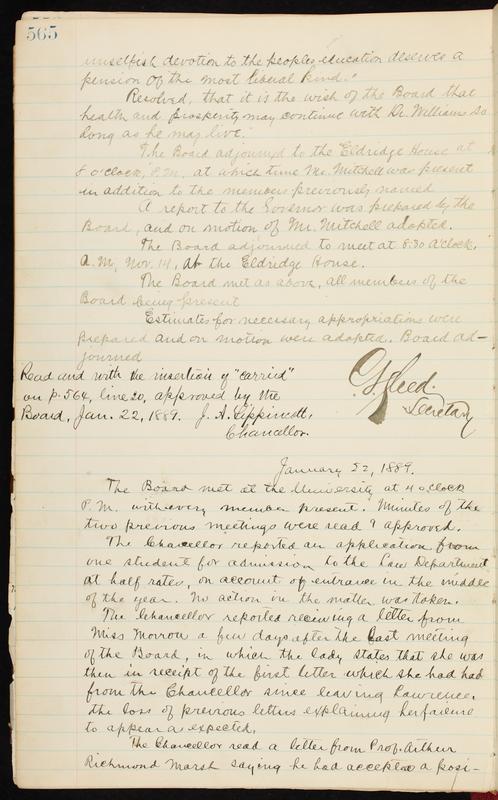 565
unselfish devotion to the peoples education deserves a
pension of the most liberal kind."
Resolved, that it is the wish of the Board that
health and prosperity may continue with Dr. Williams so
long as he may live."
The Board adjourned to the Eldridge House at
8 o'clock, P.M., at which time Mr. Mitchell was present
in addition to the members previously named
A report to the Governor was prepared by the
Board, and on motion of Mr. Mitchell adopted.
The Board adjourned to meet at 8:30 o'clock,
A.M., Nov. 14, at the Eldridge House.
The Board met as above, all members of the
Board being present
Estimates for necessary appropriations were
prepared and on motion were adopted. Board ad-
journed
Read and with the insertion of "carried"
on p. 564, line 20, approved by the
Board, Jan. 22, 1889. J. A. Lippincott,
Chancellor.
Secretary
January 22, 1889.
The Board met at the University at 4 o'clock
P.M. with every member present. Minutes of the
two previous meetings were read & approved.
The Chancellor reported an application from
one student for admission to the Law Department
at half rates, on account of entrance in the middle
of the year. No action in the matter was taken.
The Chancellor reported receiving a letter from
Miss Morrow a few days after the last meeting
of the Board, in which the lady states that she was
then in receipt of the first letter which she had had
from the Chancellor since leaving Lawrence,
the loss of previous letters explaining her failure
to appear as expected.
The Chancellor read a letter from Prof. Arthur
Richmond Marsh saying he had accepted a posi-